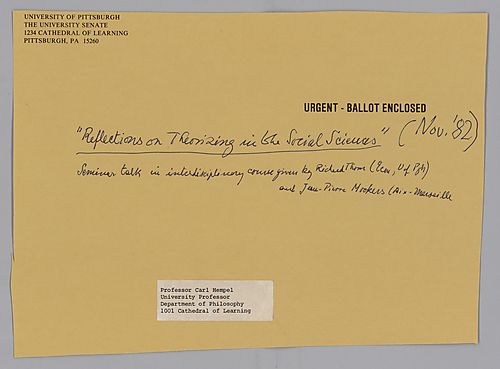 UNIVERSITY OF PITTSBURGH
THE UNIVERSITY SENATE
1234 CATHEDRAL OF LEARNING
PITTSBURGH, PA 15260
URGENT - BALLOT ENCLOSED
"Reflections on Theorizing in the Social Sciences" (Nov. '82)
Seminar talk in interdisciplinary course given by Richard Thorn (Econ, U of Pgh)
and Jean-Pierre (Aix-Marseille
Professor Carl Hempel
University Professor
Department of Philosophy
1001 Cathedral of Learning